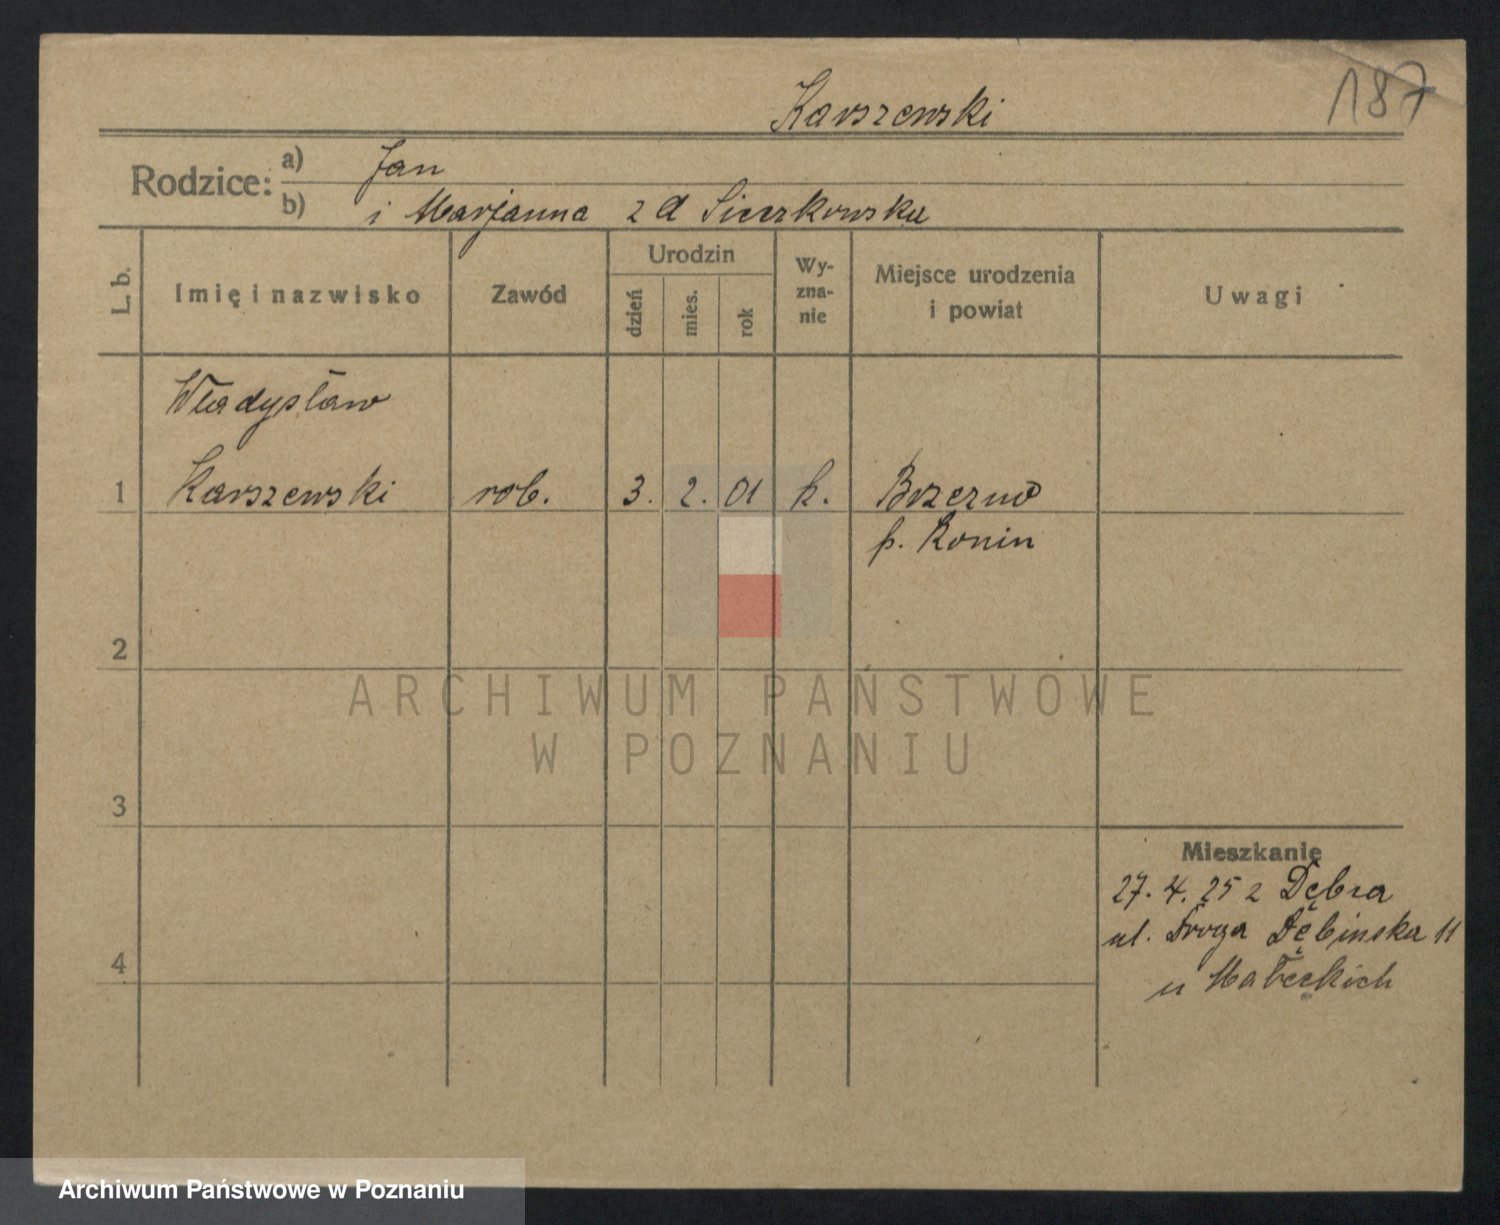 187
Karszewski
Rodzice: a) Jan
b) i Marjanna z d Sieczkowska
L. b.
Imię i nazwisko
Zawód
Urodzin
dzień
mies.
rok
Wy-
zna-
nie
Miejsce urodzenia
i powiat
Uwagi
Władysław
1 Karszewski rob. 3. 2. 01 k. Brzezno
p. Konin
2
3
4
Mieszkanie
27. 4. 25 z Dębca
ul. Droga Dębinska 11
u Małeckich
ARCHIWUM PAŃSTWOWE
W POZNANIU
Archiwum Państwowe w Poznaniu